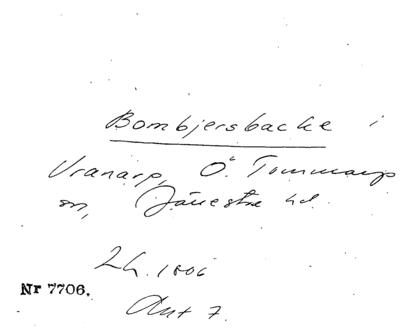 Bombjersbacke i
Vranarp, Ö. Tommarp
sn, Järrestad hd.
Lh. 1806
Nr 7706.
Akt 7.